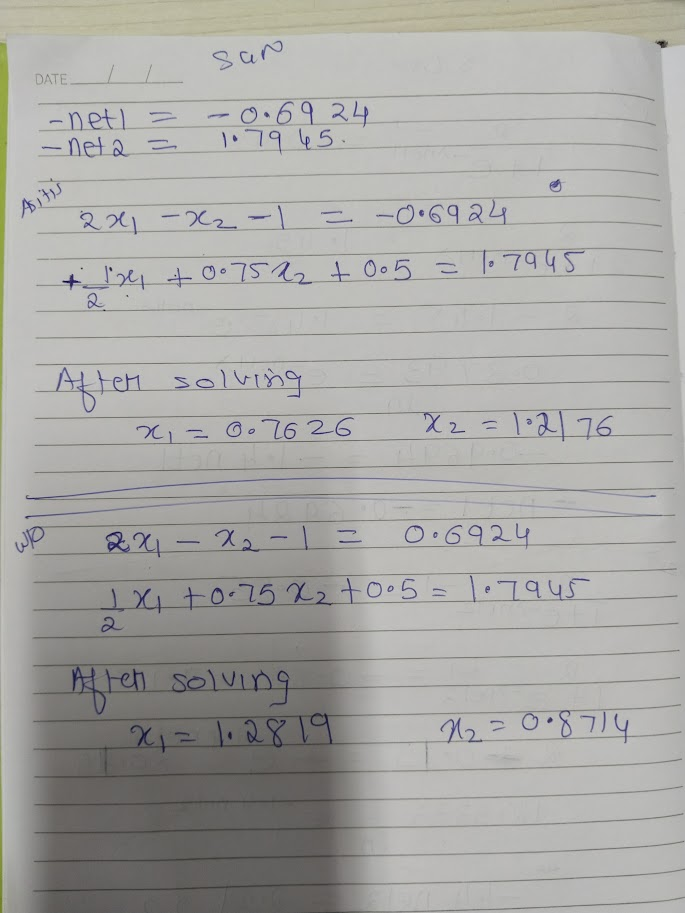 san
DATE / /
-net1 = -0.6924
-net2 = 1.7945.
2x₁ - x₂ - 1 = -0.6924
+ 1/2 x₁ + 0.75x₂ + 0.5 = 1.7945
After solving
x₁ = 0.7626 x₂ = 1.2176
2x₁ - x₂ - 1 = 0.6924
1/2 x₁ + 0.75x₂ + 0.5 = 1.7945
After solving
x₁ = 1.2819 x₂ = 0.8714